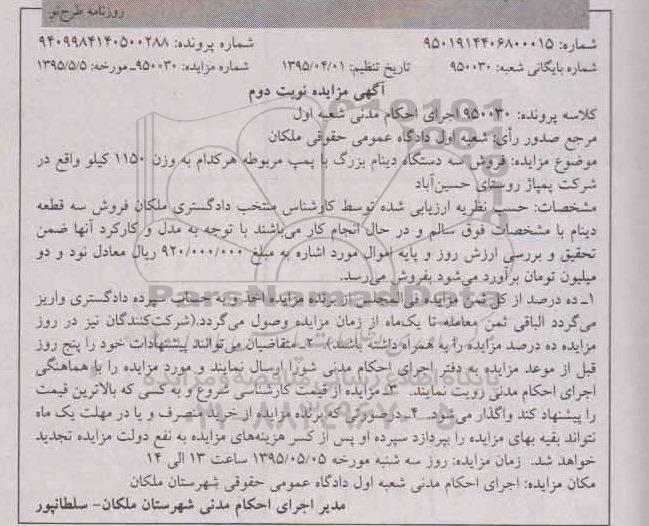 روزنامه طرح‌نو
شماره: ۹۵۰۱۹۱۴۴۰۶۸۰۰۰۱۵ شماره پرونده: ۹۴۰۹۹۸۴۱۴۰۵۰۰۲۸۸
شماره بایگانی شعبه: ۹۵۰۰۳۰ تاریخ تنظیم: ۱۳۹۵/۰۴/۰۱ شماره مزایده: ۹۵۰۰۳۰ـ مورخه: ۱۳۹۵/۵/۵
آگهی مزایده نوبت دوم
کلاسه پرونده: ۹۵۰۰۳۰ اجرای احکام مدنی شعبه اول
مرجع صدور رأی: شعبه اول دادگاه عمومی حقوقی ملکان
موضوع مزایده: فروش سه دستگاه دینام بزرگ با پمپ مربوطه هرکدام به وزن ۱۱۵۰ کیلو واقع در
شرکت پمپاژ روستای حسین‌آباد
مشخصات: حسب نظریه ارزیابی شده توسط کارشناس منتخب دادگستری ملکان فروش سه قطعه
دینام با مشخصات فوق سالم و در حال انجام کار می‌باشند با توجه به مدل و کارکرد آنها ضمن
تحقیق و بررسی ارزش روز و پایه اموال مورد اشاره به مبلغ ۹۲۰/۰۰۰/۰۰۰ ریال معادل نود و دو
میلیون تومان برآورد می‌شود بفروش می‌رسد.
۱ـ ده درصد از کل ثمن مزایده فی‌المجلس از برنده مزایده اخذ و به حساب سپرده دادگستری واریز
می‌گردد الباقی ثمن معامله تا یک‌ماه از زمان مزایده وصول می‌گردد.(شرکت‌کنندگان نیز در روز
مزایده ده درصد مزایده را به همراه داشته باشند) ۲ـ متقاضیان می‌توانند پیشنهادات خود را پنج روز
قبل از موعد مزایده به دفتر اجرای احکام مدنی شورا ارسال نمایند و مورد مزایده را با هماهنگی
اجرای احکام مدنی رویت نمایند. ۳ـ مزایده از قیمت کارشناسی شروع و به کسی که بالاترین قیمت
را پیشنهاد کند واگذار می‌شود. ۴ـ درصورتی که برنده مزایده از خرید منصرف و یا در مهلت یک ماه
نتواند بقیه بهای مزایده را بپردازد سپرده او پس از کسر هزینه‌های مزایده به نفع دولت مزایده تجدید
خواهد شد. زمان مزایده: روز سه شنبه مورخه ۱۳۹۵/۰۵/۰۵ ساعت ۱۳ الی ۱۴
مکان مزایده: اجرای احکام مدنی شعبه اول دادگاه عمومی حقوقی شهرستان ملکان
مدیر اجرای احکام مدنی شهرستان ملکان- سلطانپور
ParsNamadData
پایگاه اطلاع رسانی مناقصه و مزایده